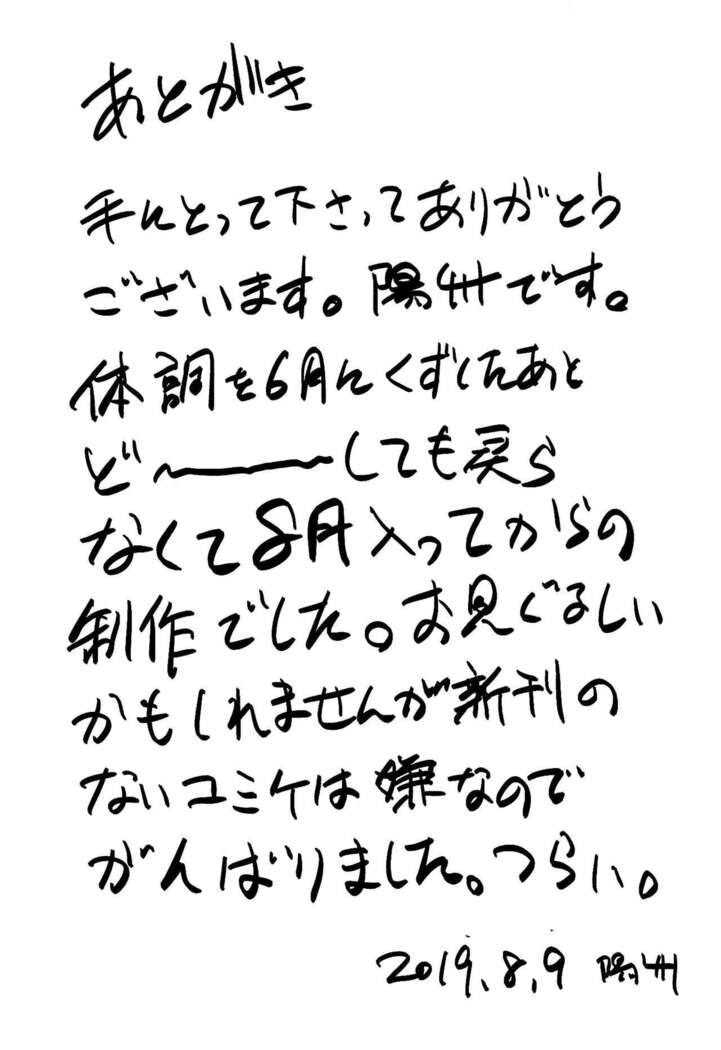 あとがき
手にとって下さってありがとう
ございます。陽州です。
体調を6月にくずしたあと
ど〜〜〜しても戻ら
なくて8月入ってからの
制作でした。お見ぐるしい
かもしれませんが新刊の
ないコミケは嫌なので
がんばりました。つらい。
2019.8.9 陽州